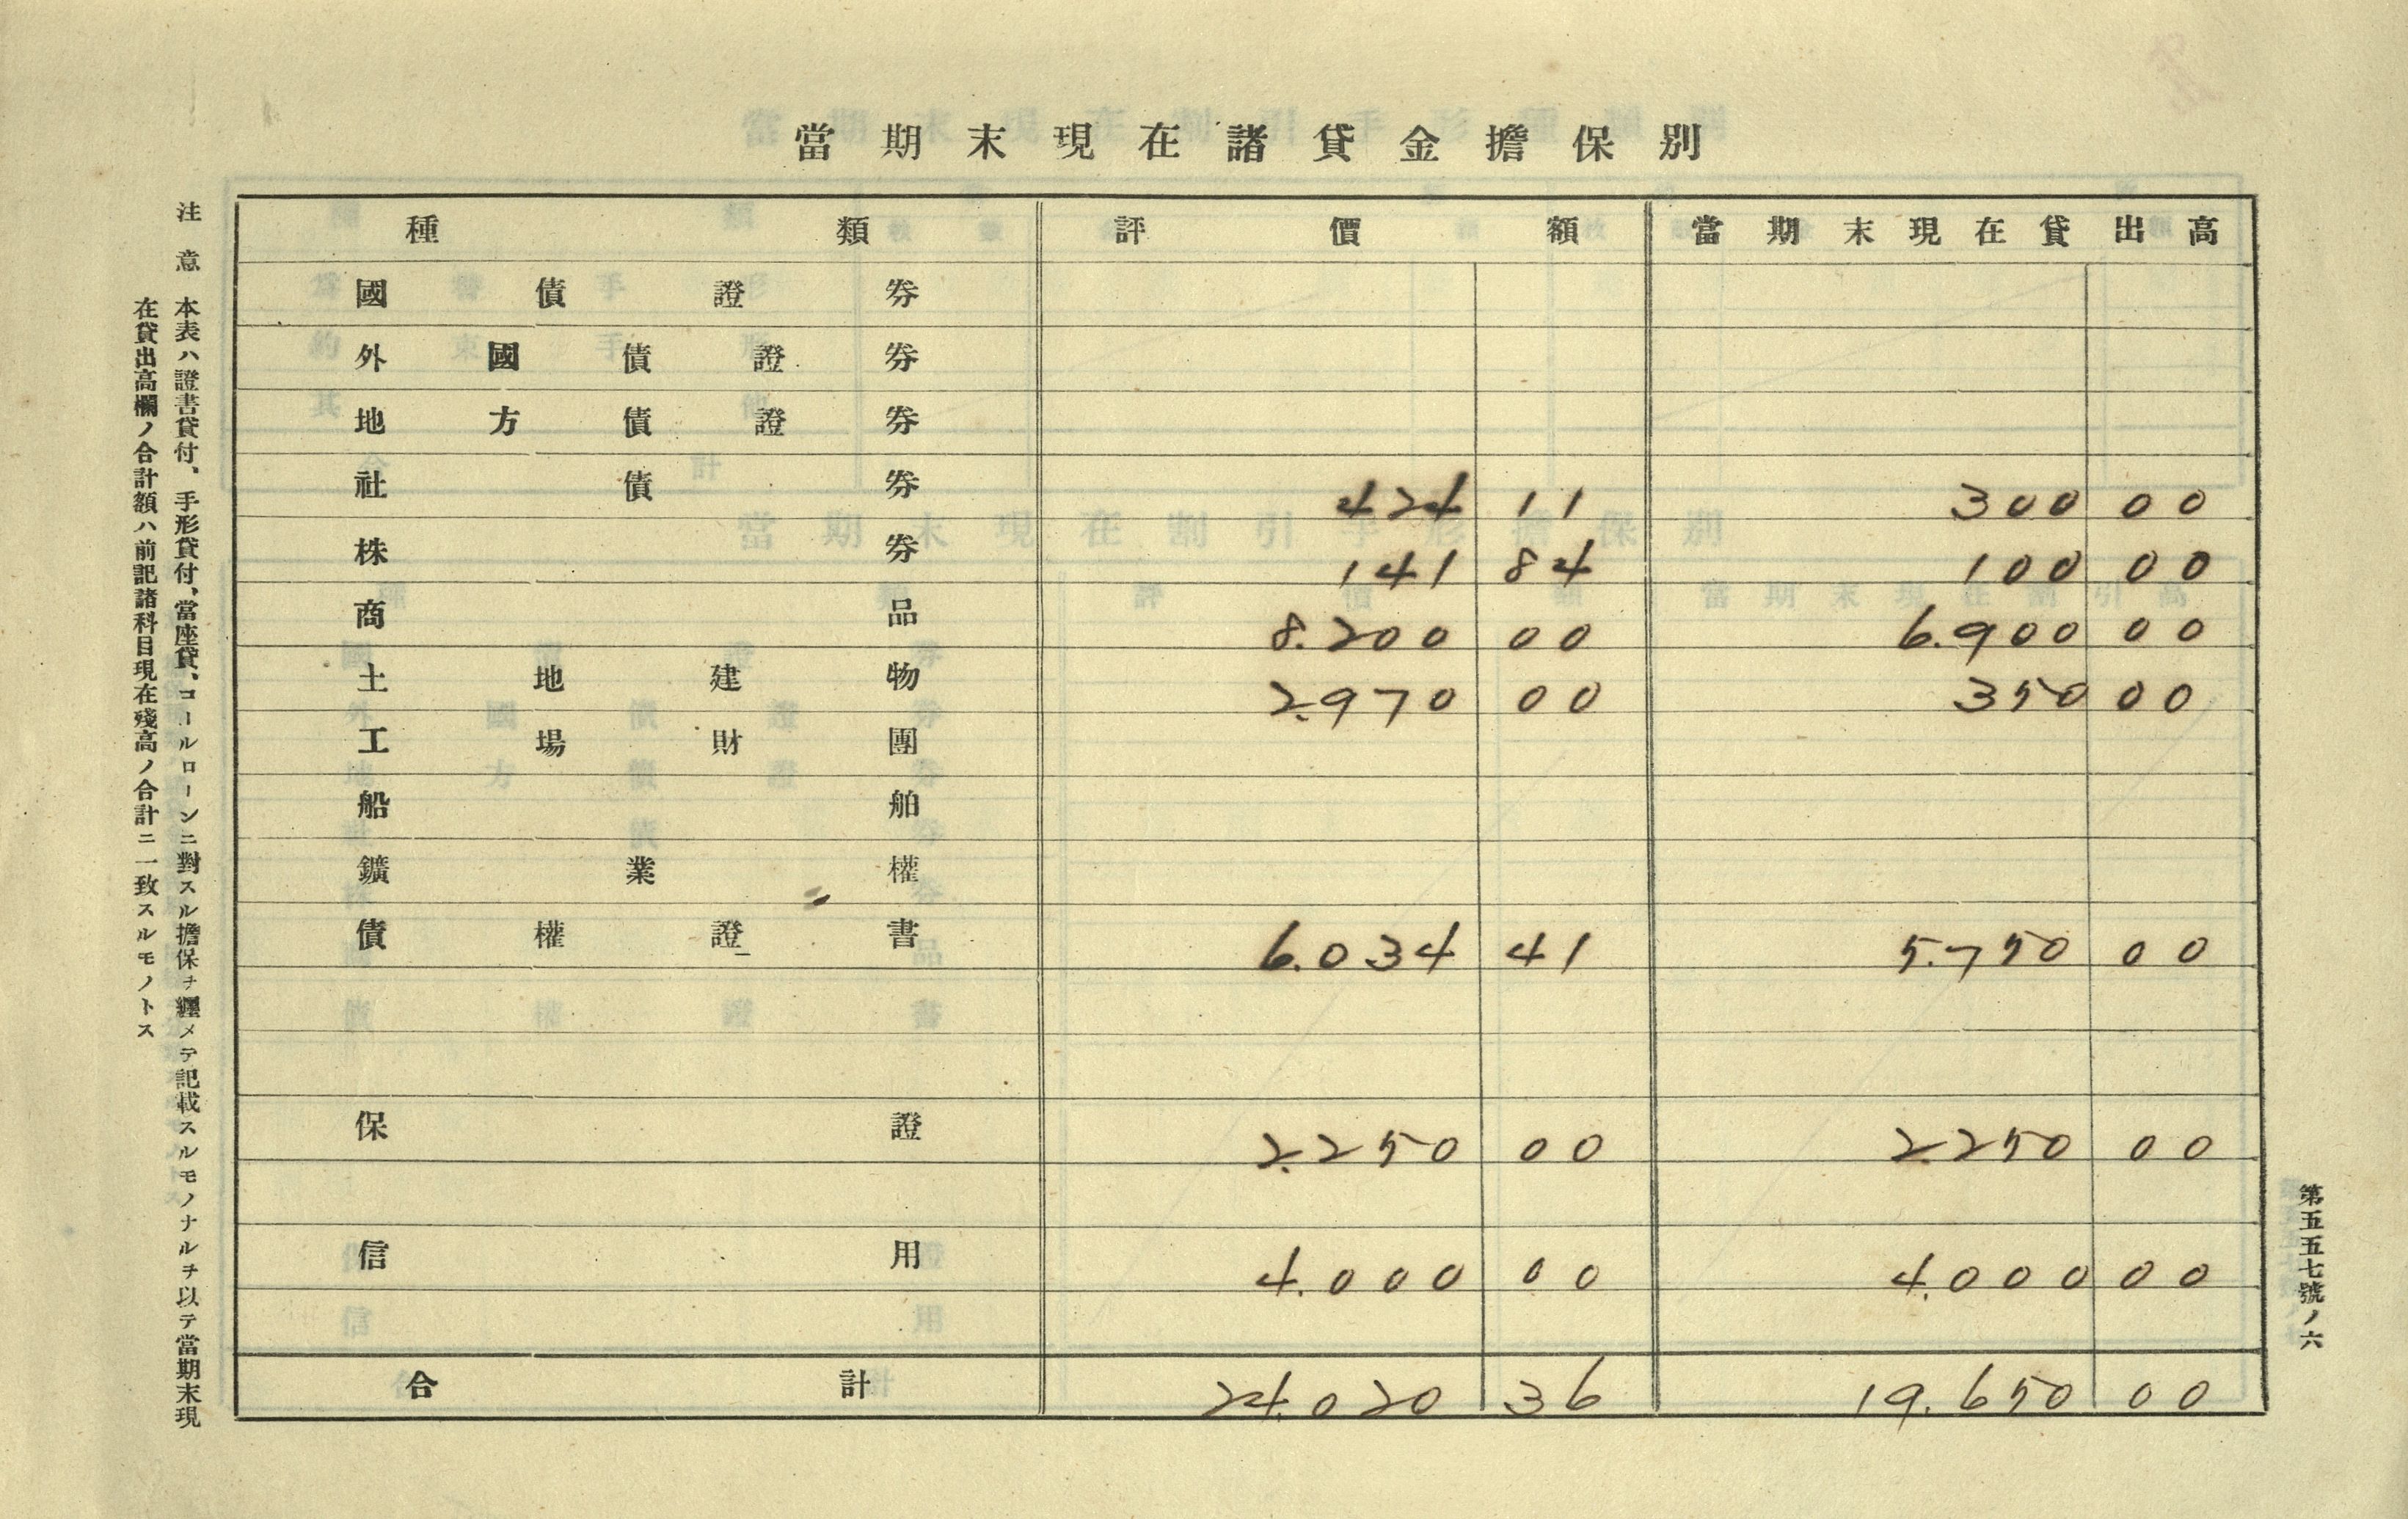 當期末現在諸貸金擔保別
種類 評價額 當期末現在貸出高
國債證券
外國債證券
地方債證券
社債券 424 11 300 00
株券 141 84 100 00
商品 8.200 00 6.900 00
土地建物 2.970 00 350 00
工場財團
船舶
鑛業權
債權證書 6.034 41 5.750 00
保證 2.250 00 2.250 00
信用 4.000 00 4.000 00
合計 24.020 36 19.650 00
第五五七號ノ六
注意 本表ハ證書貸付、手形貸付、當座貸、コールローンニ對スル擔保ヲ纒メテ記載スルモノナルヲ以テ當期末現
在貸出高欄ノ合計額ハ前記諸科目現在殘高ノ合計ニ一致スルモノトス